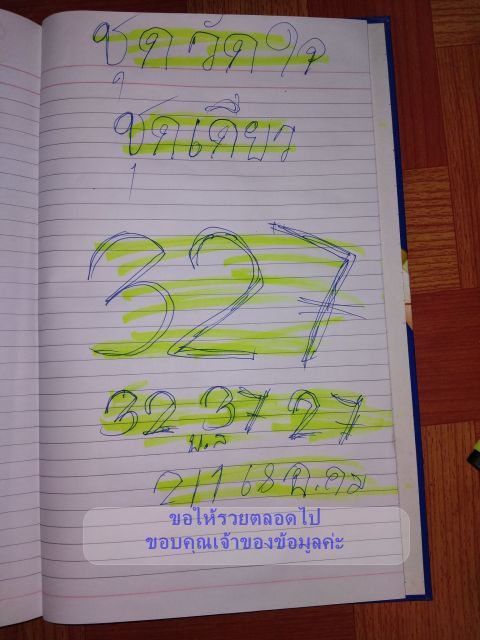 ชุดวัดใจ
ชุดเดียว
327
32 37 27
บ.ล
ขอให้รวยตลอดไป
ขอบคุณเจ้าของข้อมูลค่ะ